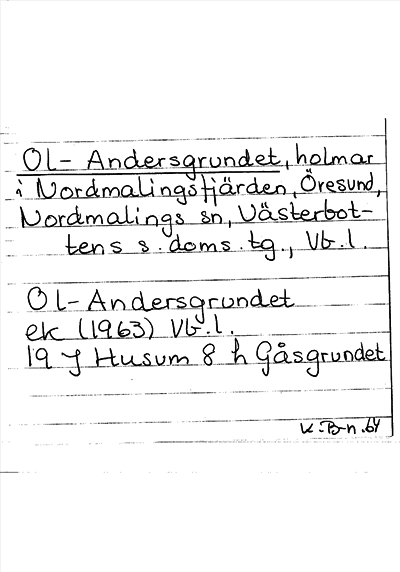 Ol- Andersgrundet, holmar
i Nordmalingsfjärden, Öresund,
Nordmalings sn, Västerbot-
tens s. doms. tg., Vb. l.
Ol-Andersgrundet
ek (1963) Vb. l.
19 J Husum 8 h Gåsgrundet
K. B-n. 64